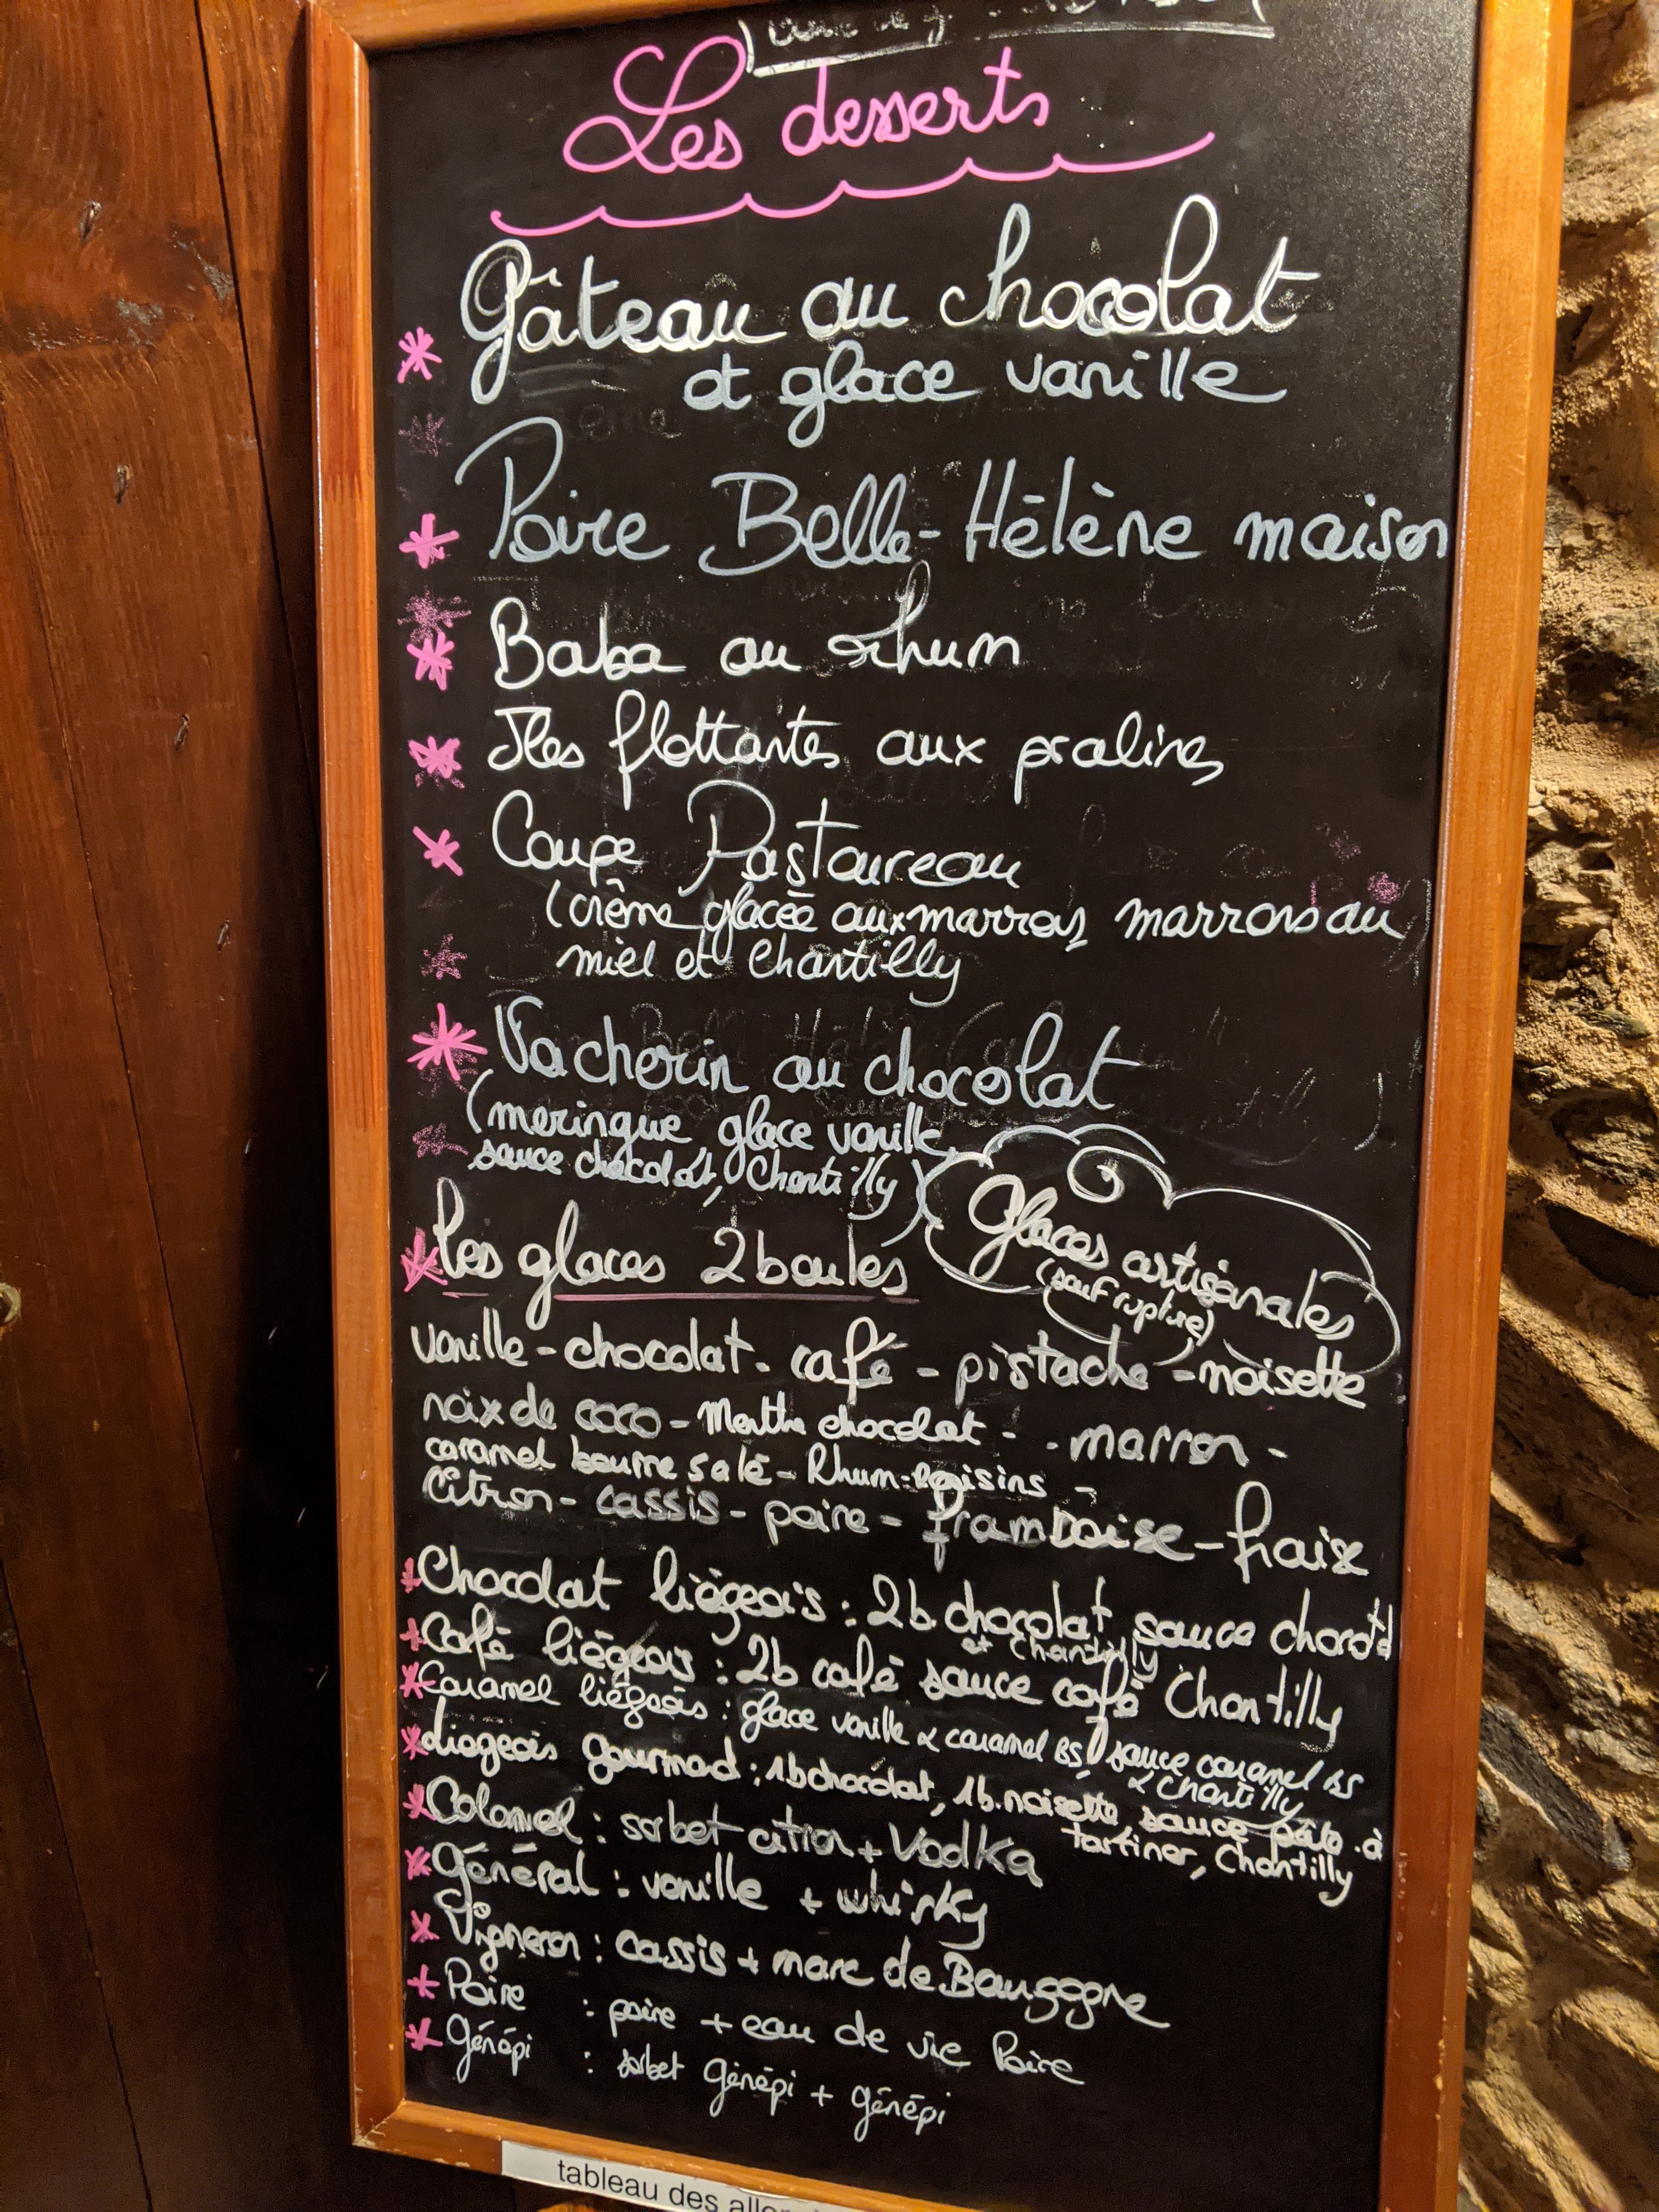 Les desserts
Gâteau au chocolat
et glace vanille
Poire Belle-Hélène maison
Baba au rhum
Iles flottantes aux pralines
Coupe Pastoureau
(crème glacée aux marrons, marrons au
miel et Chantilly
Vacherin au chocolat
(meringue, glace vanille,
sauce chocolat, Chantilly)
Glaces artisanales
(sauf rupture)
les glaces 2 boules
vanille - chocolat - café - pistache - noisette
noix de coco - Menthe chocolat - - marron -
caramel beurre salé - Rhum-Raisins -
Citron - cassis - poire - framboise - fraise
Chocolat liégeois : 2b chocolat sauce chocolat
et Chantilly
Café liégeois : 2b café sauce café Chantilly
Caramel liégeois : glace vanille & caramel BS, sauce caramel BS
& Chantilly
Liegeois gourmad : 1b chocolat, 1b. noisette sauce pâte à
tartiner, Chantilly
Colonel : sorbet citron + Vodka
Général : vanille + whisky
Vigneron : cassis + marc de Bourgogne
Poire : poire + eau de vie Poire
Génépi : sorbet Génépi + génépi
tableau des